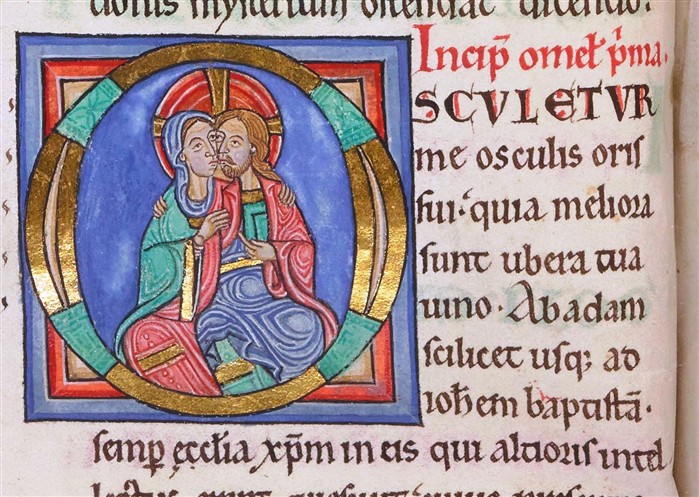 donis mysterium ostendat dicendo.
Incip̄ omeł p̄ma.
OSCVLETVR
me osculis oris
sui. quia meliora
sunt ubera tua
uino. Ab adam
scilicet usq; ad
ioh̄em baptistā.
semp̄ ęcclia xp̄m in eis qui altioris intel